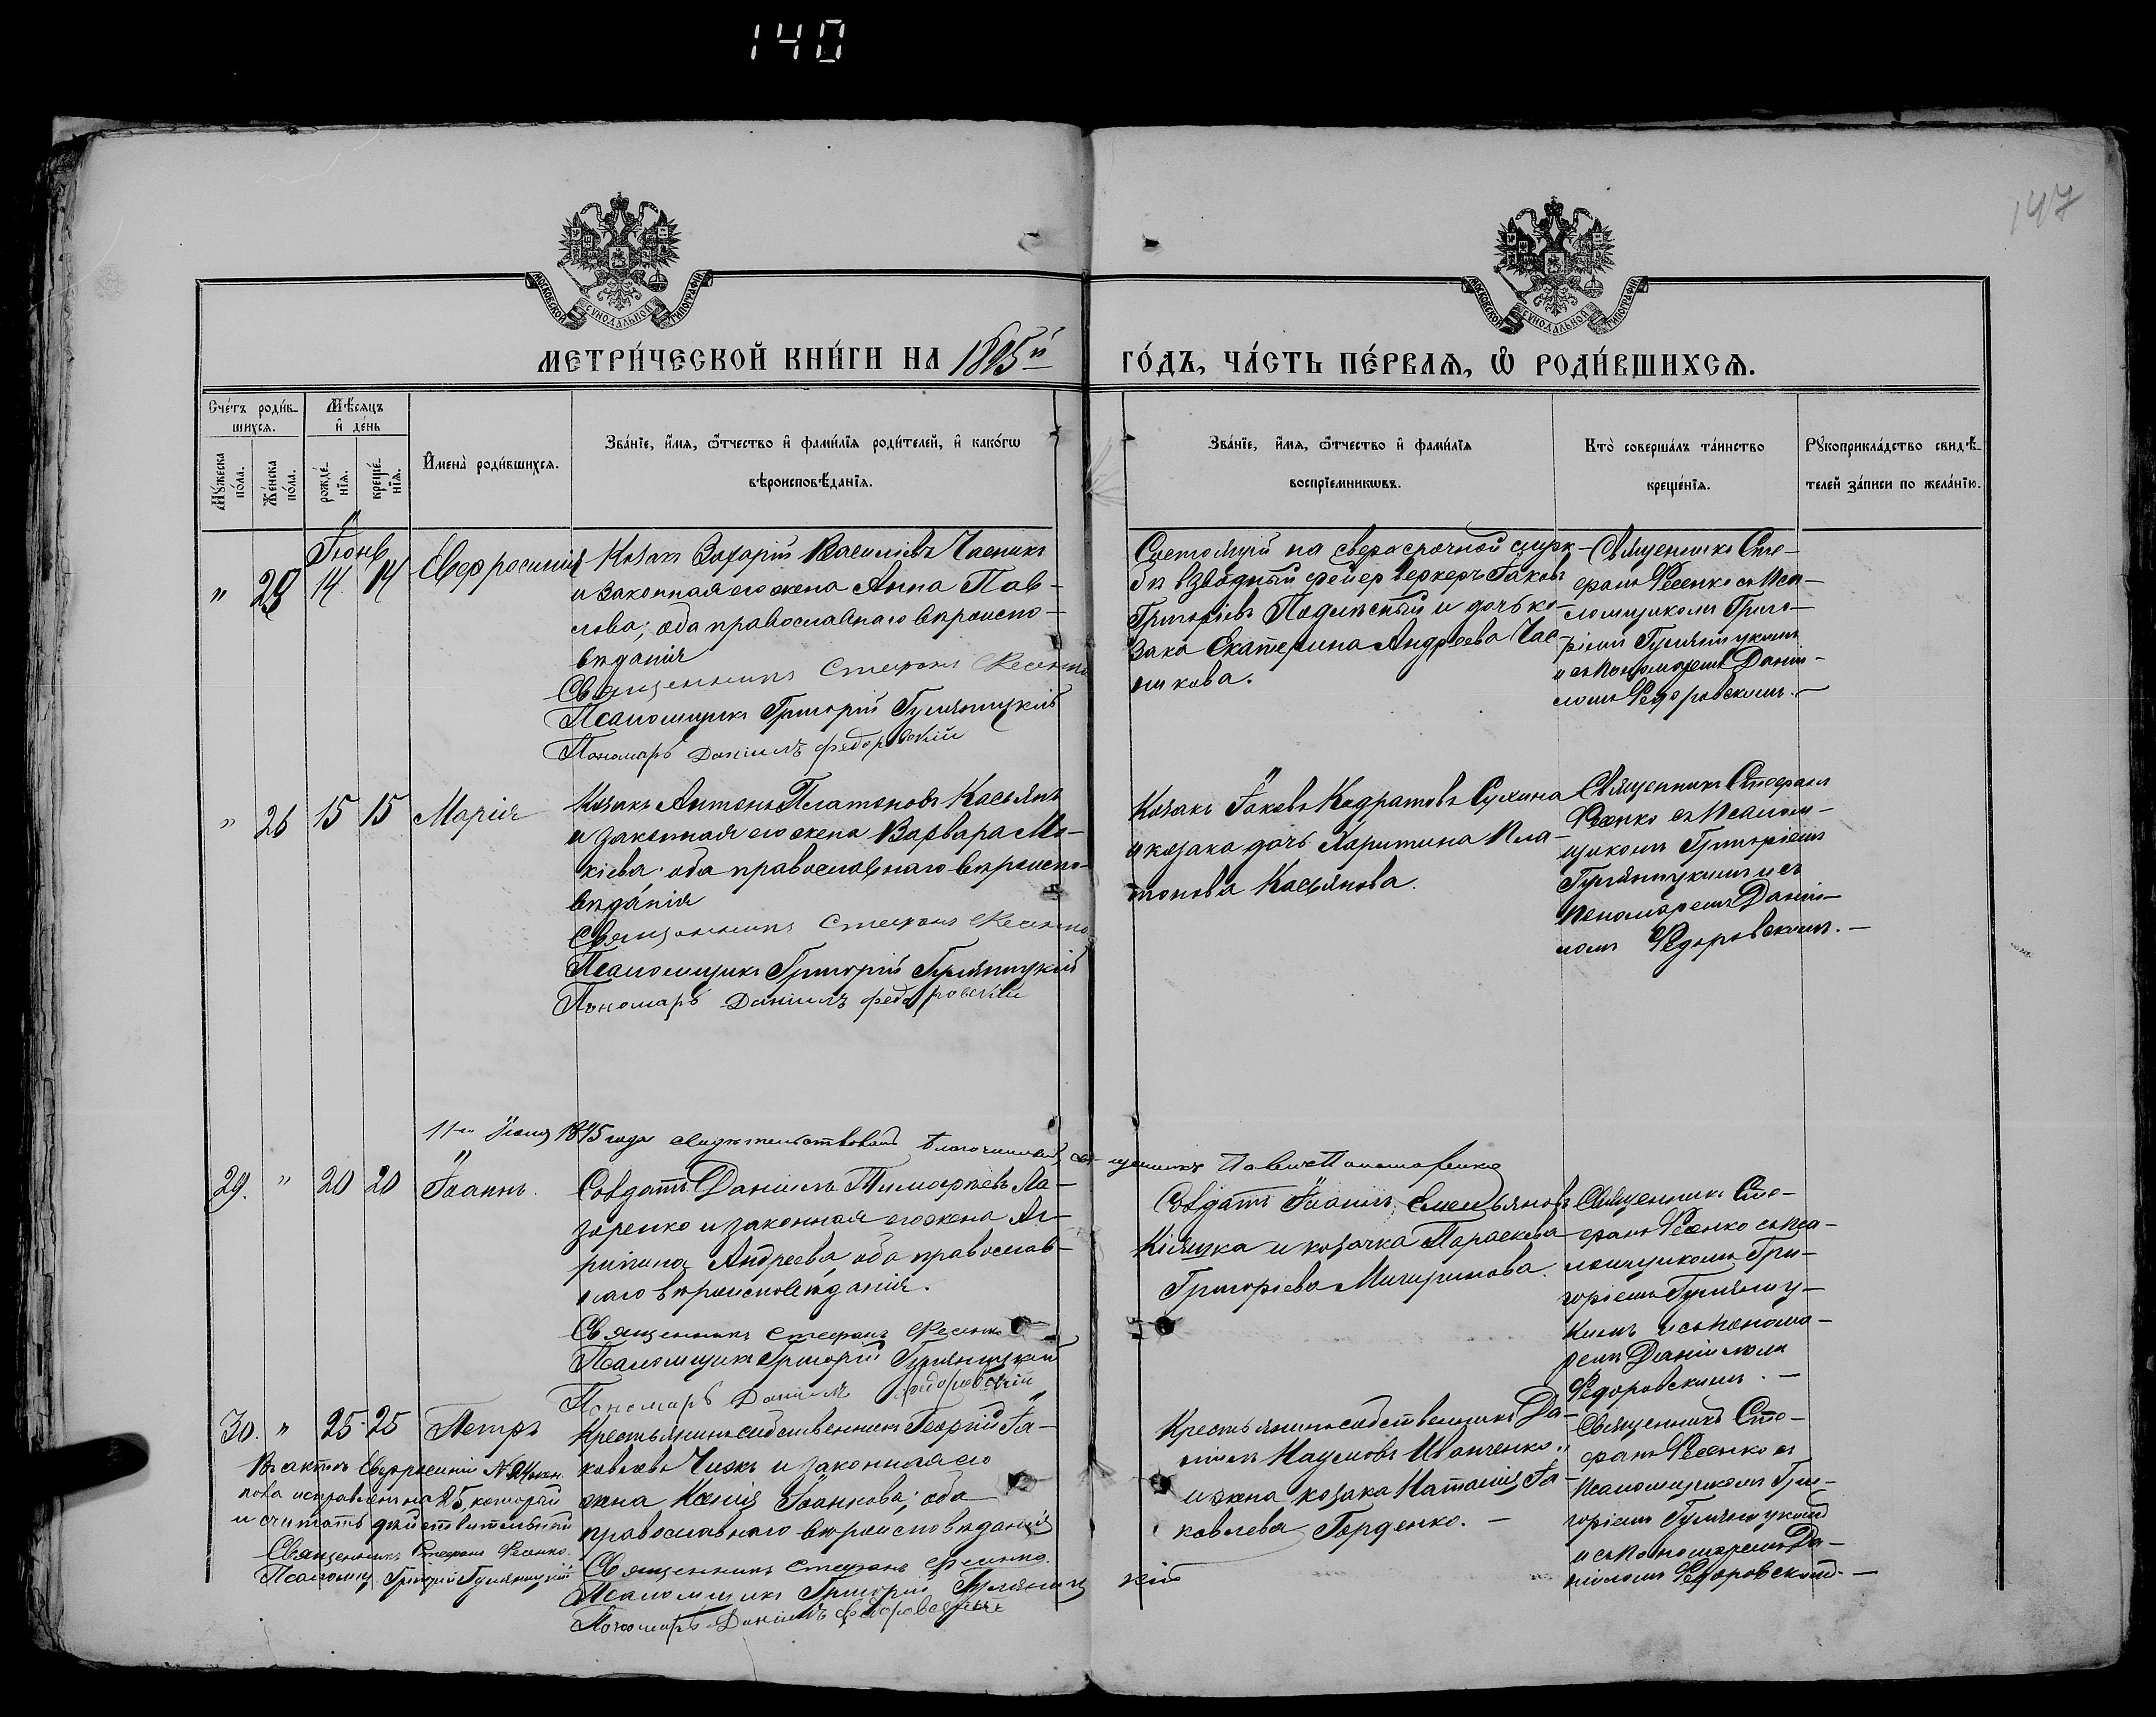 140
147
МОСКОВСКОЙ СѴНОДАЛЬНОЙ ТИПОГРАФІИ
МОСКОВСКОЙ СѴНОДАЛЬНОЙ ТИПОГРАФІИ
МЕТРИ́ЧЕСКОЙ КНИ́ГИ НА 1895й ГО́ДЪ, ЧА́СТЬ ПЕ́РВАѦ, Ѡ҆ РОДИ́ВШИХСѦ.
Сче́тъ роди́в-
шихсѧ.
Мѣ́сѧцъ
и҆ де́нь
Мꙋ́жеска
по́ла.
Же́нска
по́ла.
рожде́-
нїѧ.
креще́-
нїѧ.
И҆мена̀ роди́вшихсѧ.
Зва́нїе, и҆́мѧ, ѻ҆́тчество и҆ фами́лїѧ роди́телей, и҆ како́гѡ
вѣроисповѣ́данїѧ.
Зва́нїе, и҆́мѧ, ѻ҆́тчество и҆ фами́лїѧ
воспрїемникѡвъ.
Кто̀ соверша́лъ та́инство
креще́нїѧ.
Рꙋкоприкла́дство свидѣ́-
телей за́писи по жела́нїю.
Іюнь
" 14 14 Евфросинія
Козакъ Захарій Василіевъ Часникъ
и законная его жена Анна Пав-
лова; оба православнаго вѣроиспо-
вѣданія
Священникъ Стефанъ Фесенко
Псаломщикъ Григорій Гуляницкій
Пономарь Даніилъ Федоровскій
Состоящій на сверхсрочной служ-
бѣ взводный фейерверкеръ Іаковъ
Григоріевъ и дочь ко-
зака Екатерина Андреева Час-
никова.
Священникъ Сте-
фанъ Фесенко съ Пса-
ломщикомъ Григо-
ріемъ Гуляницкимъ
и съ Пономаремъ Даніи-
ломъ Федоровскимъ. —
" 26 15 15 Марія
Козакъ Антонъ Платоновъ Касьянъ
и законная его жена Варвара Мо-
кіева; оба православнаго вѣроиспо-
вѣданія
Священникъ Стефанъ Фесенко
Псаломщикъ Григорій Гуляницкій
Пономарь Даніилъ Федоровскій
Козакъ Іаковъ Кодратовъ Сухина
и козака дочь Харитина Пла-
тонова Касьянова.
Священникъ Стефанъ
Фесенко съ Псалом-
щикомъ Григоріемъ
Гуляницкимъ и съ
Пономаремъ Даніи-
ломъ Федоровскимъ. —
1895 года свидѣтельствовалъ благочинный, священникъ Павелъ Пономаренко
29. " 20 20 Іоаннъ.
Солдатъ Даніилъ Тимофѣевъ Ла-
заренко и законная его жена Аг-
рипина Андреева, оба православ-
наго вѣроисповѣданія.
Священникъ Стефанъ Фесенко
Псаломщикъ Григорій Гуляницкій
Пономарь Даніилъ Федоровскій
Солдатъ Іоаннъ Емельяновъ
и козачка Параскева
Григоріева
Священникъ Сте-
фанъ Фесенко съ Пса-
ломщикомъ Гри-
горіемъ Гуляниц-
кимъ и съ Понома-
ремъ Даніиломъ
Федоровскимъ. —
30. " 25 25 Петръ
Крестьянинъ собственникъ Георгій Іа-
ковлевъ Чижъ и законная его
жена Ксенія Іоаннова; оба
православнаго вѣроисповѣданія
Священникъ Стефанъ Фесенко.
Псаломщикъ Григорій Гуляницкій
Пономарь Даніилъ Федоровскій
Крестьянинъ собственникъ Да-
ніилъ Наумовъ Иванченко
и жена козака Наталія Іа-
ковлева Горденко. —
Священникъ Сте-
фанъ Фесенко съ
Псаломщикомъ Гри-
горіемъ Гуляницкимъ
и съ Пономаремъ Да-
ніиломъ Федоровскимъ. —
Въ актѣ Евфросиніи №
исправлена на 25, который
и считать дѣйствительнымъ
Священникъ Стефанъ Фесенко.
Псаломщ. Григорій Гуляницкій